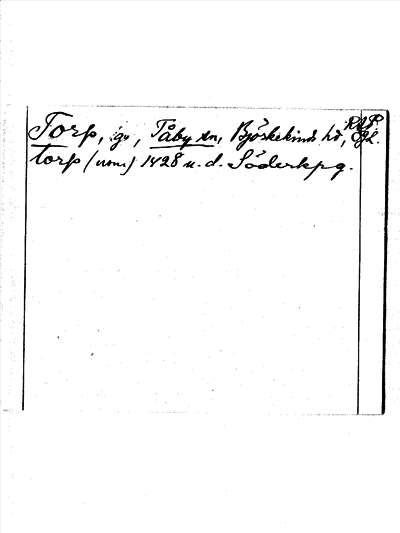 Torp, gd, Tåby sn, Björkekinds hd, Ögl.
torp (nom.) 1428 u. d. Söderkpg.